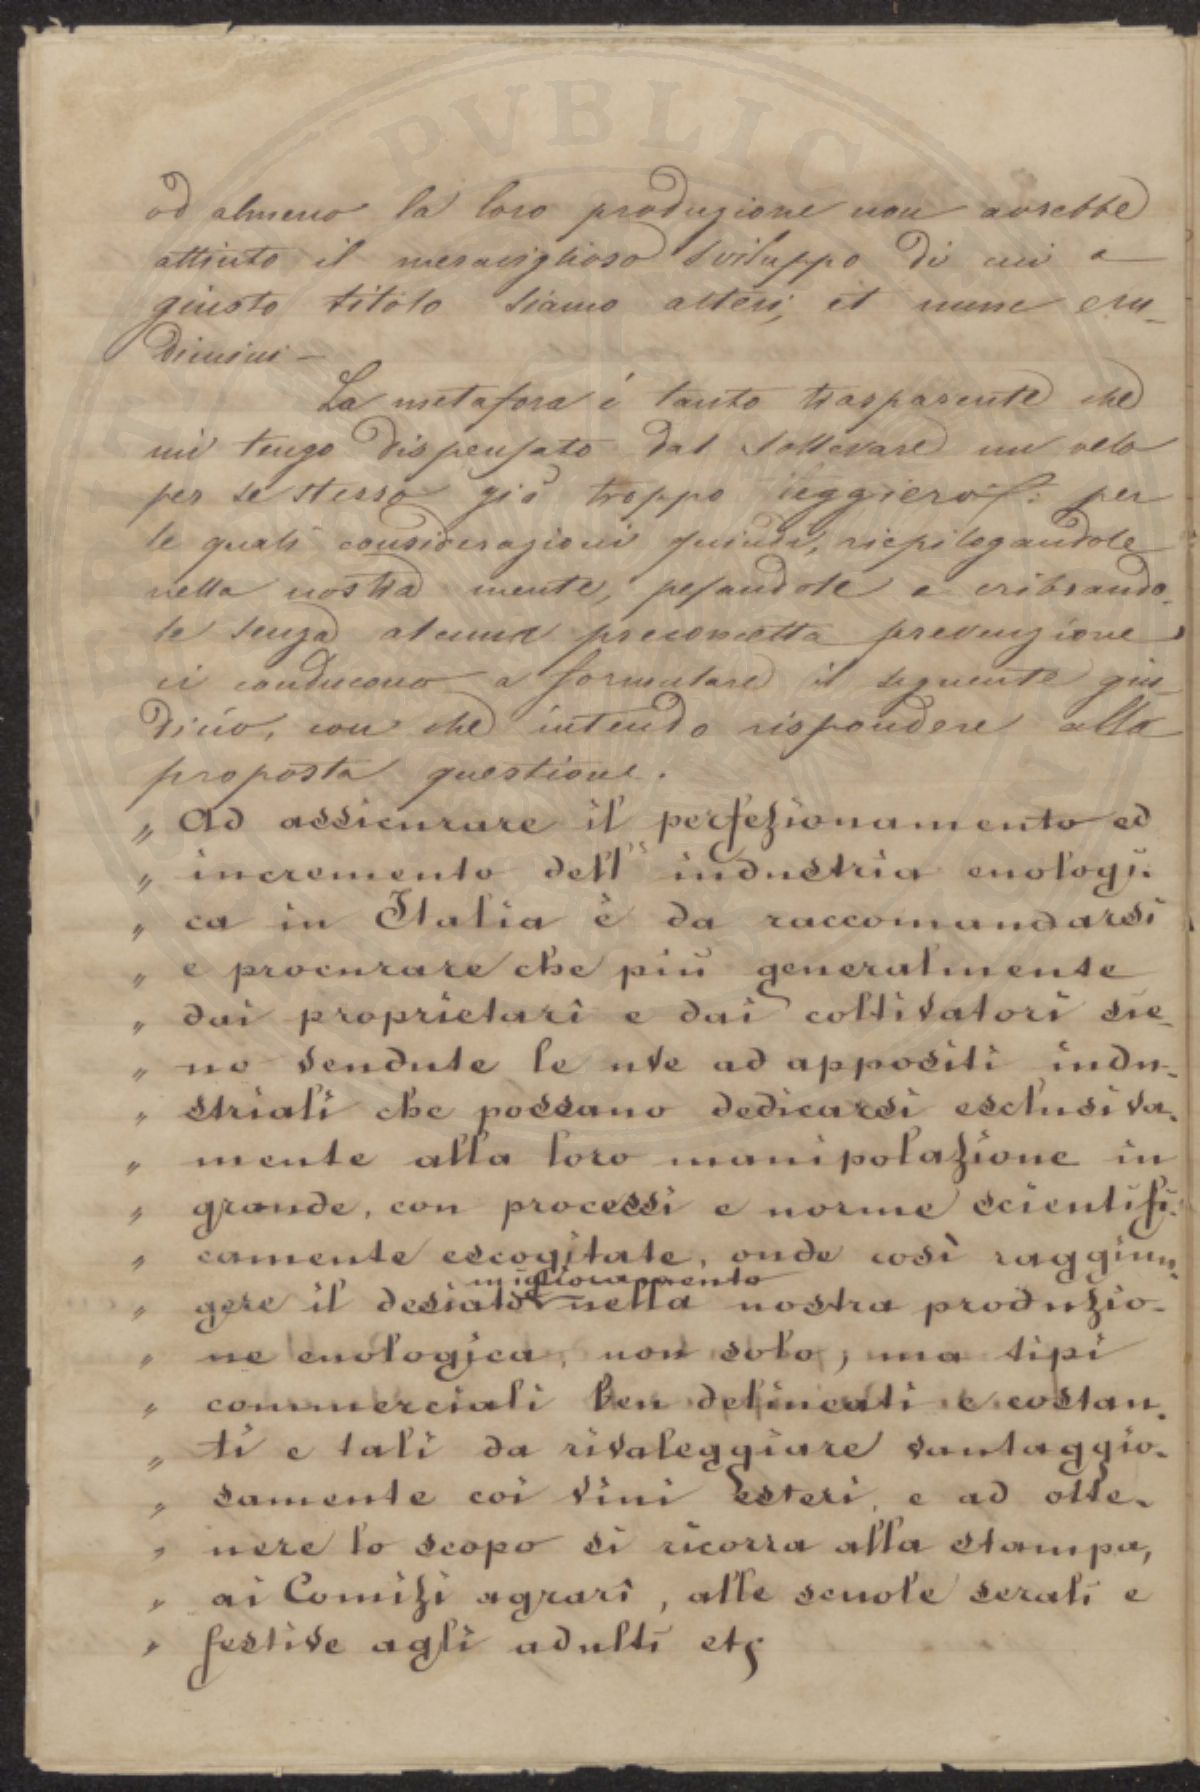 od almeno la loro produzione non avrebbe
attinto il meraviglioso sviluppo di cui a
giusto titolo siamo alteri, et nunc eru-
dimini -
La metafora è tanto trasparente che
mi tengo dispensato dal sollevare un velo
per se stesso già troppo leggiero: per
le quali considerazioni quindi, riepilogandole
nella nostra mente, pesandole e cribrando-
le senza alcuna preconcetta prevenzione
ci conducono a formulare il seguente giu-
dicio, con che intendo rispondere alla
proposta questione.
„ Ad assicurare il perfezionamento ed
„ incremento dell' industria enologi-
„ ca in Italia è da raccomandarsi
„ e procurare che più generalmente
„ dai proprietari e dai coltivatori sie-
„ no vendute le uve ad appositi indu-
„ striali che possano dedicarsi esclusiva-
„ mente alla loro manipolazione in
„ grande, con processi e norme scientifi-
„ camente escogitate, onde così raggiun-
miglioramento
„ gere il desiato nella nostra produzio-
„ ne enologica, non solo, ma tipi
„ commerciali ben delineati e costan-
„ ti e tali da rivaleggiare vantaggio-
„ samente coi vini esteri, e ad otte-
„ nere lo scopo si ricorra alla stampa,
„ ai Comizi agrari, alle scuole serali e
„ festive agli adulti etc
PVBLIC